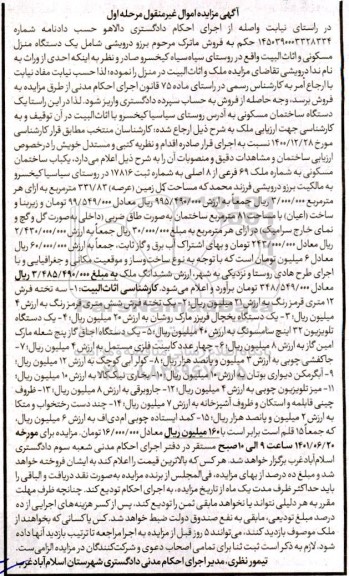 آگهی مزایده اموال غیرمنقول مرحله اول
در راستای نیابت واصله از اجرای احکام دادگستری دالاهو حسب دادنامه شماره
۱۴۰۰۳۹۰۰۰۳۳۲۸۳۳۴ حکم به فروش ماترک مرحوم برزو درویشی شامل یک دستگاه منزل
مسکونی و اثاث البیت واقع در روستای سیاه سیاه کیخسرو صادر و نظر به اینکه احدی از وراث به
نام ندا درویشی تقاضای مزایده ملک و اثاث البیت در منزل را نموده؛ لذا حسب نیابت مفاد نیابت
با ارجاع امر به کارشناس رسمی در راستای ماده ۷۵ قانون اجرای احکام مدنی از طرق مزایده به
فروش برسد، وجه حاصله از فروش به حساب سپرده دادگستری واریز شود. لذا در این راستا یک
دستگاه ساختمان مسکونی به آدرس روستای سیاسیا کیخسرو با اثاث البیت در آن توقیف و به
کارشناسی جهت ارزیابی ملک به شرح ذیل ارجاع شده؛ کارشناسان منتخب مطابق قرار کارشناسی
مورخ ۱۴۰۰/۱۲/۲۸ نسبت به اجرای قرار صادره اقدام و نظریه کتبی و مستدل خویش را در خصوص
ارزیابی ساختمان و مشاهدات دقیق و منصوبات آن را به شرح ذیل اعلام می‌دارد، یکباب ساختمان
مسکونی به شماره ملک ۶۹ فرعی از ۸ اصلی به شماره ثبت ۱۷۸۱۶ در روستای سیاسیا کیخسرو
به مالکیت برزو درویشی فرزند محمد که مساحت کل زمین (عرصه) ۳۳۱/۸۳ مترمربع به ازای هر
مترمربع ۳/۰۰۰/۰۰۰ ریال جمعاً به ارزش ۹۹۵/۴۹۰/۰۰۰ ریال معادل ۹۹/۵۴۹/۰۰۰ تومان و زیربنا و
ساخت (اعیان) با مساحت مترمربع ساختمان به‌صورت طاق ضربی (داخلی به‌صورت گل و گچ و
نمای خارج سرامیک) در ازای هر مترمربع به مبلغ ۳۰/۰۰۰/۰۰۰ ریال جمعاً به ارزش ۲/۴۳۰/۰۰۰/۰۰۰
ریال معادل ۲۴۳/۰۰۰/۰۰۰ تومان و بهای اشتراک آب برق و گاز ثابت، جمعاً به ارزش ۶۰/۰۰۰/۰۰۰ ریال
معادل ۶ میلیون تومان است که با توجه به نوع ساخت و ساز و موقعیت مکانی و جغرافیایی و با
اجرای طرح هادی روستا و نزدیکی به شهر، ارزش ششدانگ ملک به مبلغ ۳/۴۸۵/۴۹۰/۰۰۰ ریال
معادل ۳۴۸/۵۴۹/۰۰۰ تومان برآورد و اعلام می‌شود. کارشناسی اثاث البیت: ۱- سه تخته فرش
۱۲ متری قرمز رنگ به ارزش ۲۱ میلیون ریال؛ ۲- یک تخته فرش شش متری قرمز رنگ به ارزش ۴
میلیون ریال؛ ۳- یک دستگاه یخچال فریزر مارک روشان به ارزش ۲۰ میلیون ریال؛ ۴- یک دستگاه
تلویزیون ۳۲ اینچ سامسونگ به ارزش ۴۰ میلیون ریال؛ ۵- یک دستگاه اجاق گاز پنج شعله مارک
امین گاز به ارزش ۸ میلیون ریال؛ ۶- چهار عدد کابینت فلزی مستعمل به ارزش ۴ میلیون ریال؛ ۷-
جاکفشی چوبی به ارزش ۳ میلیون و پانصد هزار ریال؛ ۸- کولر آبی کوچک به ارزش ۱۲ میلیون ریال؛
۹- آبگرمکن دیواری بوتان به ارزش ۱۰ میلیون ریال؛ ۱۰- بخاری نیک کالا به ارزش ۱۰ میلیون ریال؛
۱۱- میز تلویزیون چوبی به ارزش ۴ میلیون ریال؛ ۱۲- جاروبرقی به ارزش ۸ میلیون ریال؛ ۱۳- ظروف
چینی قابلمه و استکان و ظروف آشپزخانه به ارزش ۷ میلیون ریال؛ ۱۴- چند دست رختخواب و متکا
به ارزش ۲ میلیون و پانصد هزار ریال؛ ۱۵- کمد ایستاده چوبی ام دی اف به ارزش ۶ میلیون ریال،
که جمعاً ۱۵ قلم است برابر است با ۱۶۰ میلیون ریال معادل ۱۶/۰۰۰/۰۰۰ تومان. مزایده برای مورخه
۱۴۰۱/۰۶/۲۰ ساعت ۹ الی ۱۰ صبح مستقر در دفتر اجرای احکام مدنی شعبه سوم دادگستری
اسلام‌آبادغرب برگزار خواهد شد. هر کس که بالاترین قیمت را اعلام کند به ایشان فروخته خواهد
شد و مبلغ ده درصد از بهای مزایده، فی‌المجلس از برنده مزایده به‌صورت نقد دریافت و الباقی را
باید حداکثر ظرف مدت یک ماه از تاریخ مزایده، به اجرای احکام تودیع کند. چنانچه ظرف مهلت
مقرر به هر دلیلی نتواند یا نخواهد مابقی ثمن را تودیع کند، پس از کسر هزینه‌های اجرایی از ده
درصد مبلغ تودیعی، مابقی به نفع صندوق دولت ضبط خواهد شد. کس یا کسانی که بخواهند از
ملک موصوف بازدید کنند، می‌توانند ۵ روز قبل از مزایده به اجرا مراجعه تا ترتیب بازدید آنها داده
شود. لازم به ذکر است ثبت ثنا برای تمامی اصحاب دعوی و شرکت‌کنندگان در مزایده الزامی‌ست.
تیمور نظری، مدیر اجرای احکام مدنی دادگستری شهرستان اسلام‌آباد غرب